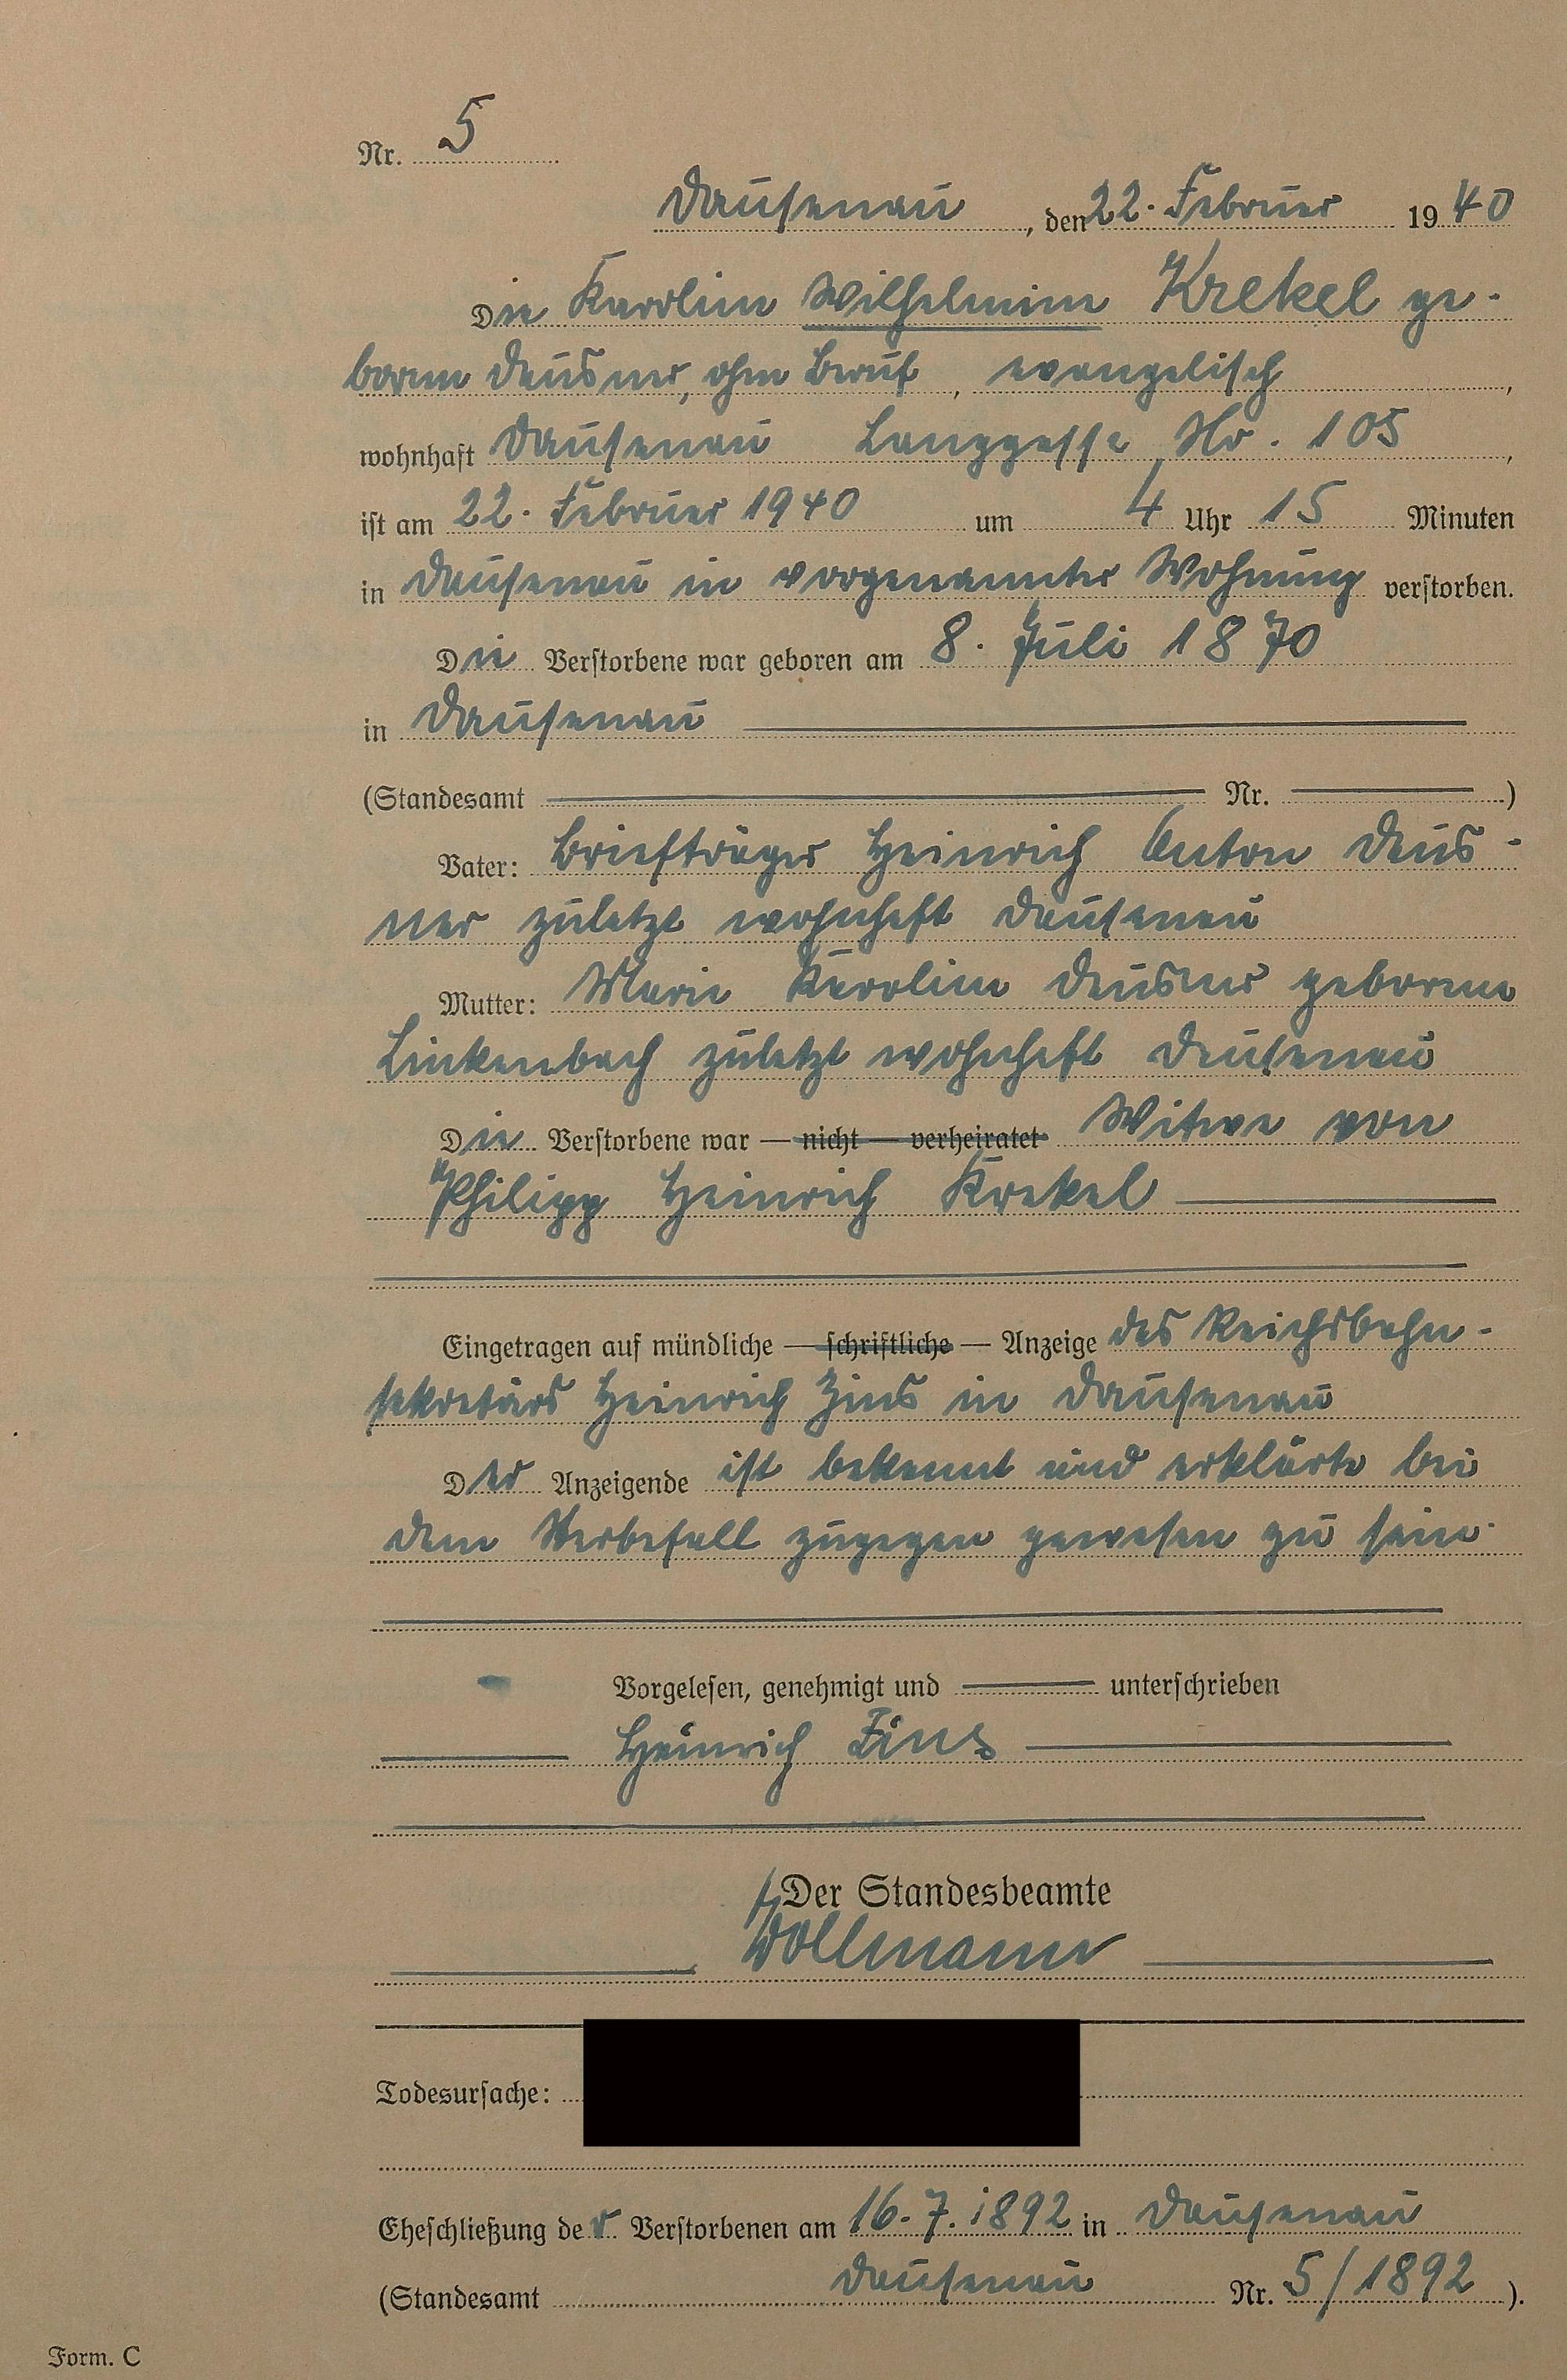 Nr. 5
Dausenau, den 22. Februar 1940
Die Karoline Wilhelmine Krekel ge-
borene Deusner, ohne Beruf, evangelisch,
wohnhaft Dausenau Langgasse Nr. 105,
ist am 22. Februar 1940 um 4 Uhr 15 Minuten
in Dausenau in vorgenannter Wohnung verstorben.
Die Verstorbene war geboren am 8. Juli 1870
in Dausenau
(Standesamt Nr. )
Vater: Briefträger Heinrich Anton Deus-
ner zuletzt wohnhaft Dausenau
Mutter: Marie Karoline Deusner geborene
Linkenbach zuletzt wohnhaft Dausenau
Die Verstorbene war — nicht — verheiratet Witwe von
Philipp Heinrich Krekel
Eingetragen auf mündliche — schriftliche — Anzeige des Reichsbahn-
sekretärs Heinrich Zins in Dausenau
Der Anzeigende ist bekannt und erklärte bei
dem Sterbefall zugegen gewesen zu sein.
Vorgelesen, genehmigt und unterschrieben
Heinrich Zins
Der Standesbeamte
Wollmann
Todesursache:
Eheschließung der Verstorbenen am 16.7.1892 in Dausenau
(Standesamt Dausenau Nr. 5/1892).
Form. C